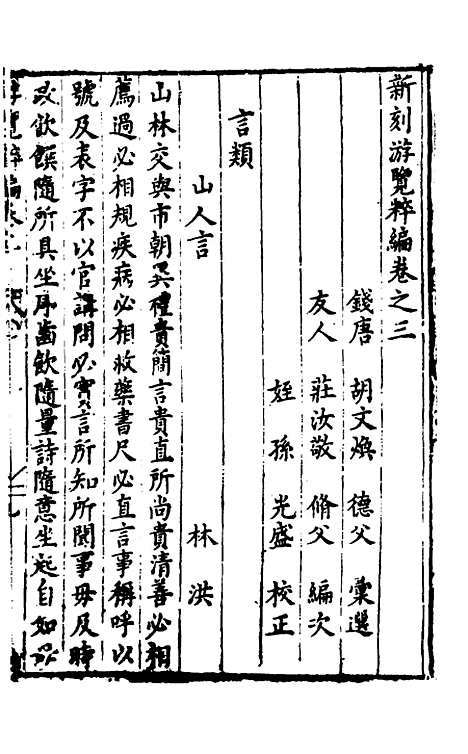 新刻游覽粹編卷之三
錢唐 胡文煥 德父 彙選
友人 莊汝敬 脩父 編次
姪孫 光盛 校正
言類
山人言 林洪
山林交與市朝異禮貴簡言貴直所尚貴清善必相
薦過必相規疾病必相救藥書尺必直言事稱呼以
號及表字不以官講問必實言所知所聞事毋及時
政飲饌隨所具坐序齒飲隨量詩隨意坐起自如不